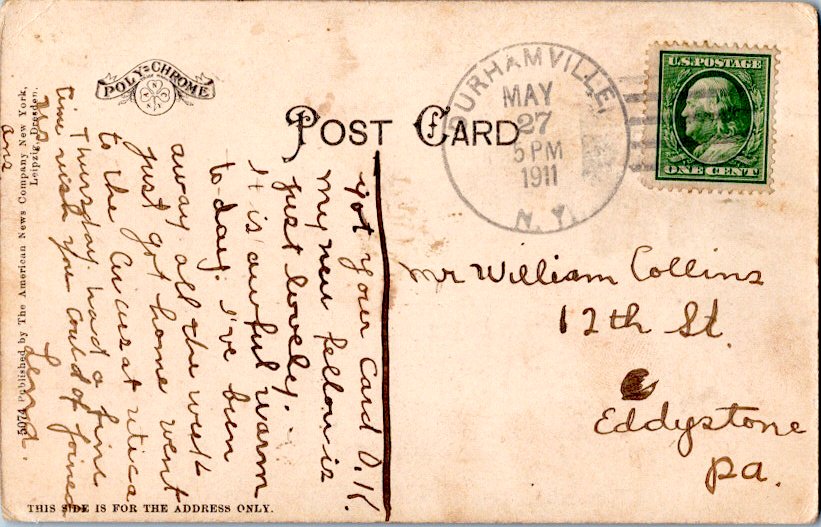 POLY-CHROME
POST CARD
DURHAMVILLE,
MAY
27
5 PM
1911
N.Y.
U.S. POSTAGE
ONE CENT
Mr William Collins
12th St.
Eddystone
Pa.
got your Card O.K.
my new fellow is
just lovely.
It is awful warm
to day. I've been
away all the week
just got home went
to the Circus at Utica
Thursday. had a fine
time wish you could of joined
us
ans
Lena.
5074 Published by The American News Company New York,
Leipzig, Dresden.
THIS SIDE IS FOR THE ADDRESS ONLY.